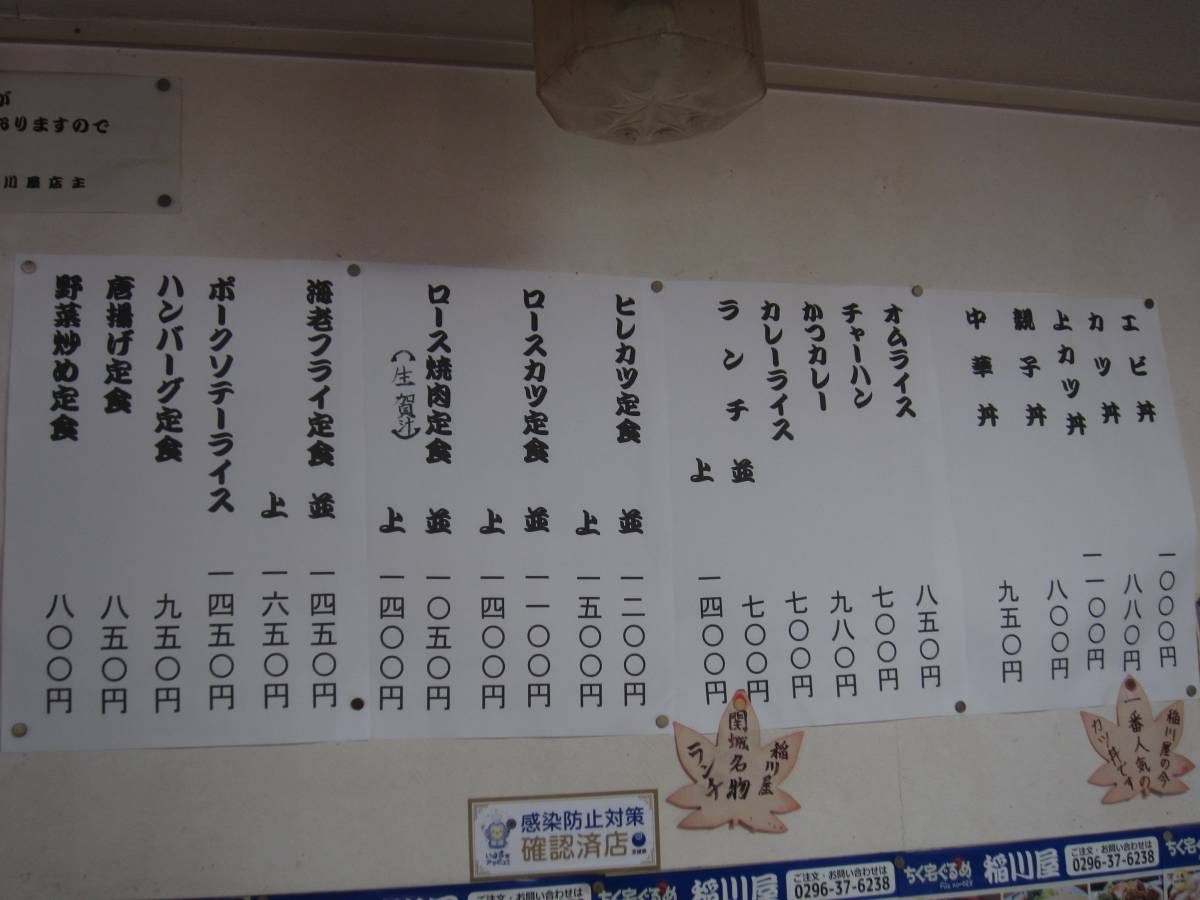 が
おりますので
川屋店主
エビ丼 一〇〇〇円
カツ丼 八八〇円
上カツ丼 一一〇〇円
親子丼 八〇〇円
中華丼 九五〇円
オムライス 八五〇円
チャーハン 七〇〇円
かつカレー 九八〇円
カレーライス 七〇〇円
ランチ 並 七〇〇円
上 一四〇〇円
ヒレカツ定食 並 一二〇〇円
上 一五〇〇円
ロースカツ定食 並 一一〇〇円
上 一四〇〇円
ロース焼肉定食 並 一〇五〇円
(生賀汁) 上 一四〇〇円
海老フライ定食 並 一四五〇円
上 一六五〇円
ポークソテーライス 一四五〇円
ハンバーグ定食 九五〇円
唐揚げ定食 八五〇円
野菜炒め定食 八〇〇円
稲川屋の今
一番人気の
カツ丼です
稲川屋
関城名物
ランチ
感染防止対策
確認済店
ちく宅ぐるめ
稲川屋
ご注文・お問い合わせは
0296-37-6238
ちく宅ぐるめ
稲川屋
ご注文・お問い合わせは
0296-37-6238
ちく宅ぐるめ
稲川屋
ご注文・お問い合わせは